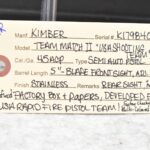 Manf: KIMBER #: K179840
Model: TEAM MATCH II "USA SHOOTING TEAM"
Cal.: 45ACP Type: SEMI AUTO PISTOL
Barrel Length: 5" - BLADE FRONT SIGHT, ADJ.
Finish: STAINLESS REAR SIGHT
FACTORY BOX & PAPERS, DEVELOPED
USA RAPID FIRE PISTOL TEAM